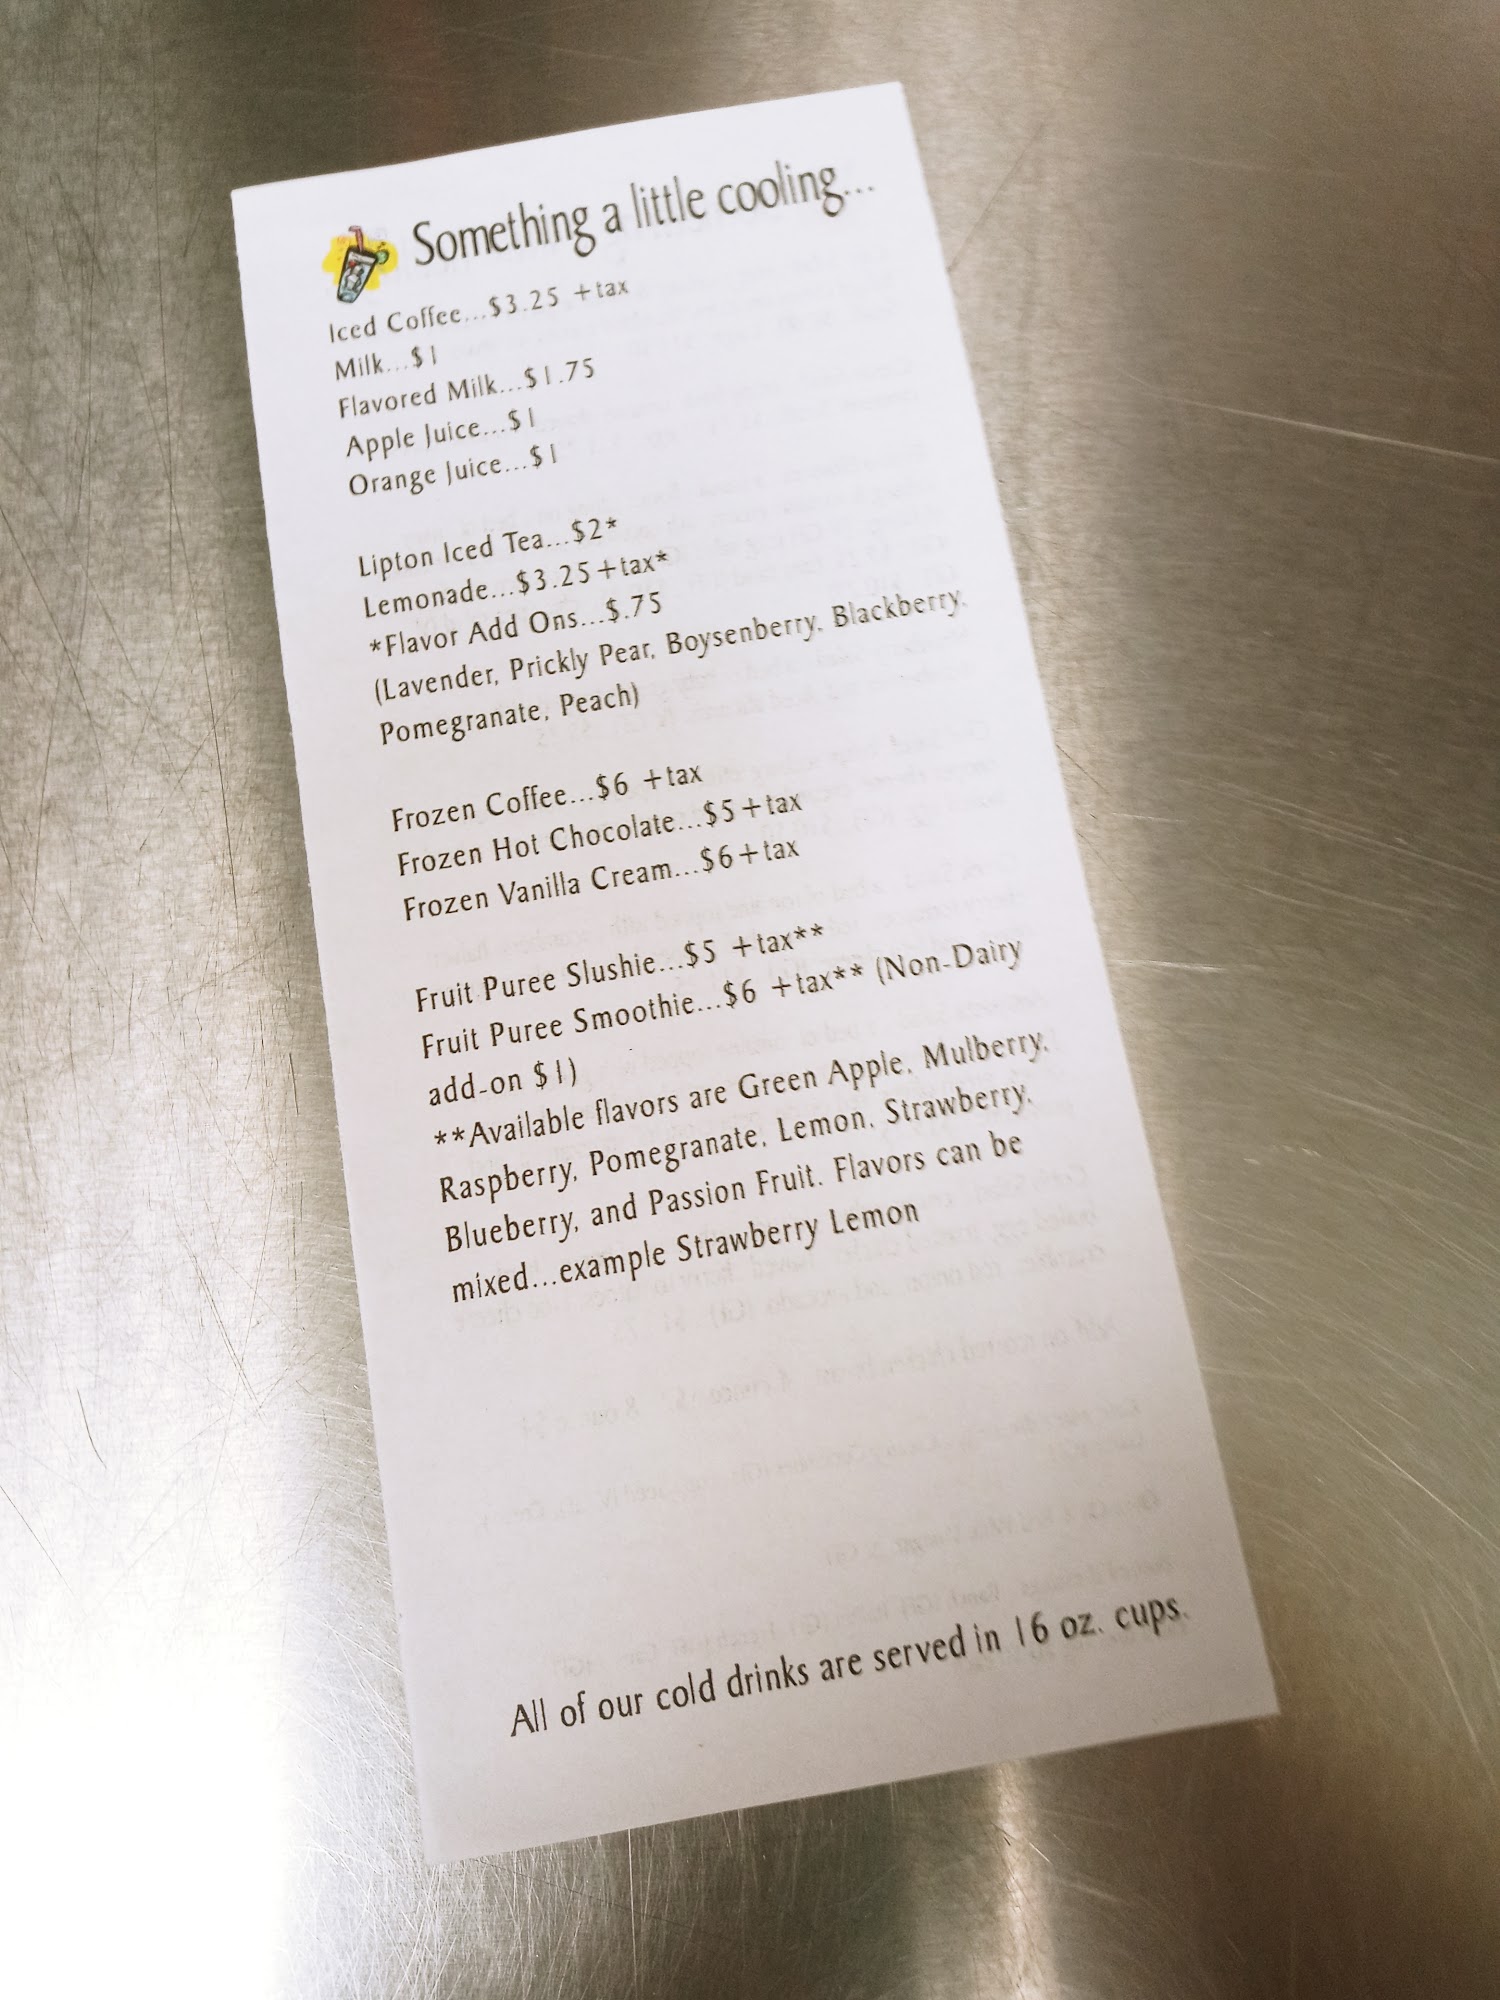 Something a little cooling...
Iced Coffee...$3.25 +tax
Milk...$1
Flavored Milk...$1.75
Apple Juice...$1
Orange Juice...$1
Lipton Iced Tea...$2*
Lemonade...$3.25+tax*
*Flavor Add Ons...$.75
(Lavender, Prickly Pear, Boysenberry, Blackberry,
Pomegranate, Peach)
Frozen Coffee...$6 +tax
Frozen Hot Chocolate...$5+tax
Frozen Vanilla Cream...$6+tax
Fruit Puree Slushie...$5 +tax**
Fruit Puree Smoothie...$6 +tax** (Non-Dairy
add-on $1)
**Available flavors are Green Apple, Mulberry,
Raspberry, Pomegranate, Lemon, Strawberry,
Blueberry, and Passion Fruit. Flavors can be
mixed...example Strawberry Lemon
All of our cold drinks are served in 16 oz. cups.